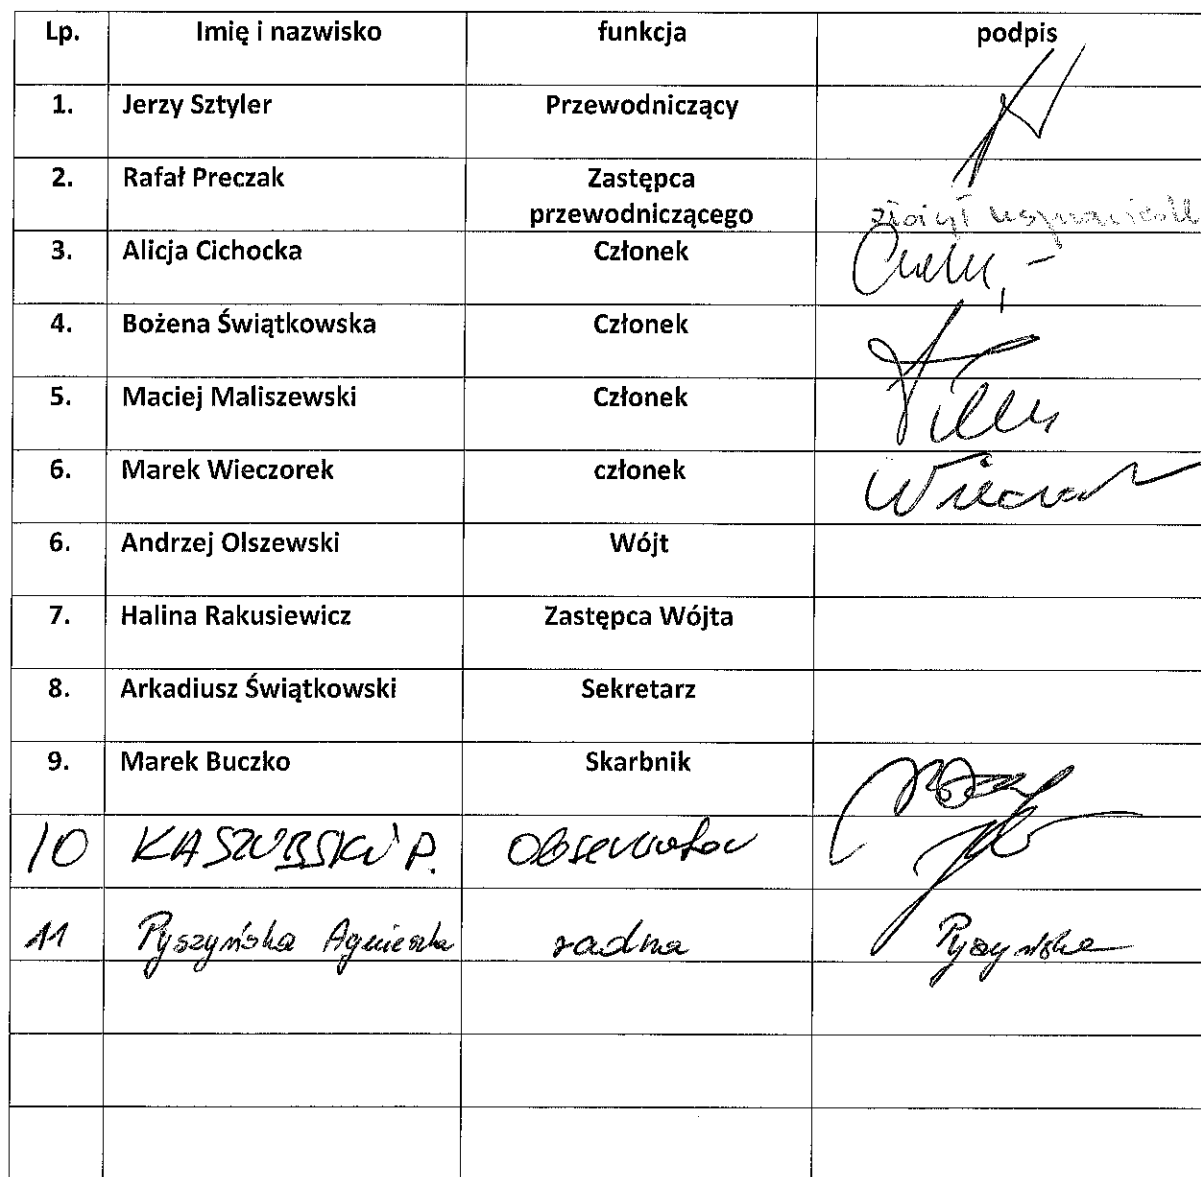 Lp. Imię i nazwisko funkcja podpis
1. Jerzy Sztyler Przewodniczący
2. Rafał Preczak Zastępca
przewodniczącego
złożył
3. Alicja Cichocka Członek
4. Bożena Świątkowska Członek
5. Maciej Maliszewski Członek
6. Marek Wieczorek członek
6. Andrzej Olszewski Wójt
7. Halina Rakusiewicz Zastępca Wójta
8. Arkadiusz Świątkowski Sekretarz
9. Marek Buczko Skarbnik
10 KASZUBSKI P. Obserwator
11 Pyszyńska Agnieszka radna Pyszyńska